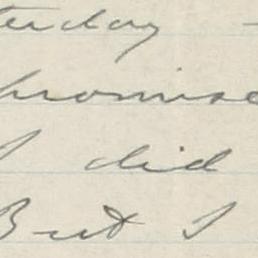 terday -
promise
I did
But I